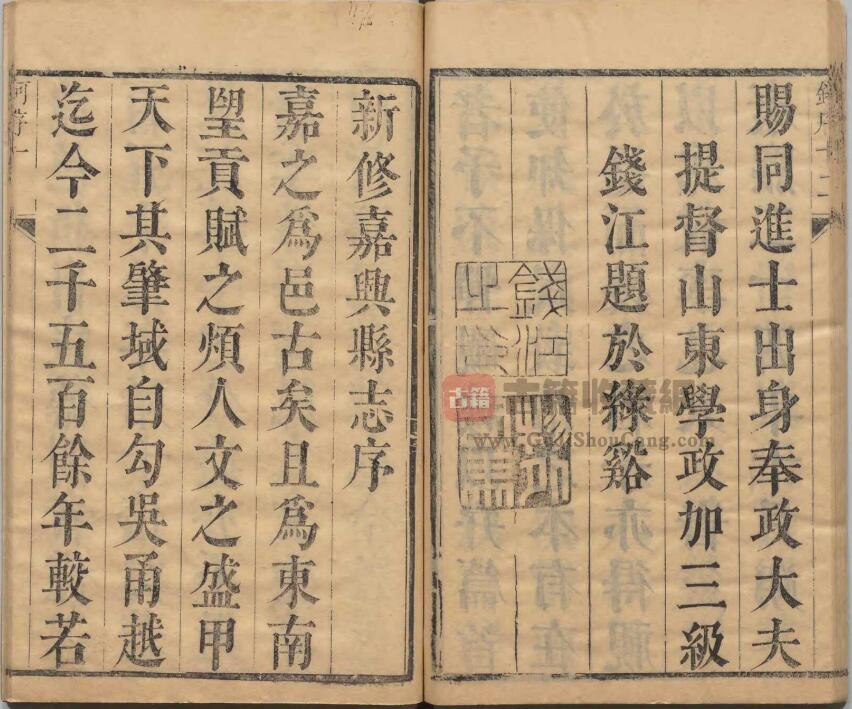 賜同進士出身奉政大夫
提督山東學政加三級
錢江題於綠谿
新修嘉興縣志序
嘉之爲邑古矣且爲東南
望貢賦之煩人文之盛甲
天下其肇域自勾吳甬越
迄今二千五百餘年較若
古籍
古籍收藏網
www.GujiShouCang.com